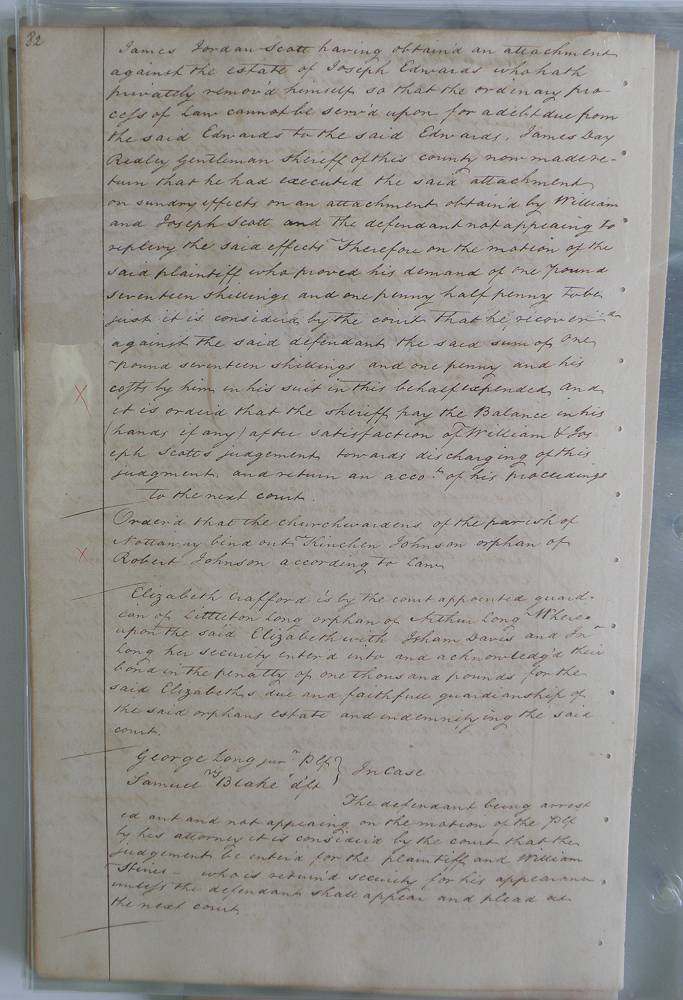 82
James Jordan Scott having obtain'd an attachment
against the estate of Joseph Edwards who hath
privately remov'd himself so that the ordinary pro-
cess of Law cannot be serv'd upon for a debt due from
the said Edwards to the said Edwards, James Day
Ridley Gentleman Sheriff of this county now made re-
turn that he had executed the said attachment
on sundry effects on an attachment obtain'd by William
and Joseph Scott and the defendant not appearing to
replevy the said effects Therefore on the motion of the
said plaintiff who proved his demand of one pound
seventeen shillings and one penny half penny to be
just it is consider'd by the court that he recover
against the said defendant the said sum of one
pound seventeen shillings and one penny and his
costs by him in his suit in this behalf expended, and
it is order'd that the sheriff pay the Balance in his
hands (if any) after satisfaction of William & Jos-
eph Scott's judgement towards discharging of this
judgment, and return an acco.t of his proceedings
to the next court.
Order'd that the churchwardens of the parish of
Nottaway bind out Kinchen Johnson orphan of
Robert Johnson according to Law
Elizabeth Crafford is by the court appointed guard-
ian of Littleton Long orphan of Arthur Long Where-
upon the said Elizabeth with Isham Davis and Jn.o
Long her security enter'd into and acknowledg'd their
bond in the penalty of one thousand pounds for the
said Elizabeth's due and faithfull guardianship of
the said orphans estate and indemnifying the said
court.
George Long jun.r Plf
vs } In Case
Samuel Blake dft
The defendant being arrest
ed and not appearing on the motion of the Plf
by his attorney it is consider'd by the court that the
judgement be enter'd for the plaintiff and William
who is return'd security for his appearance
unless the defendant shall appear and plead at
the next court